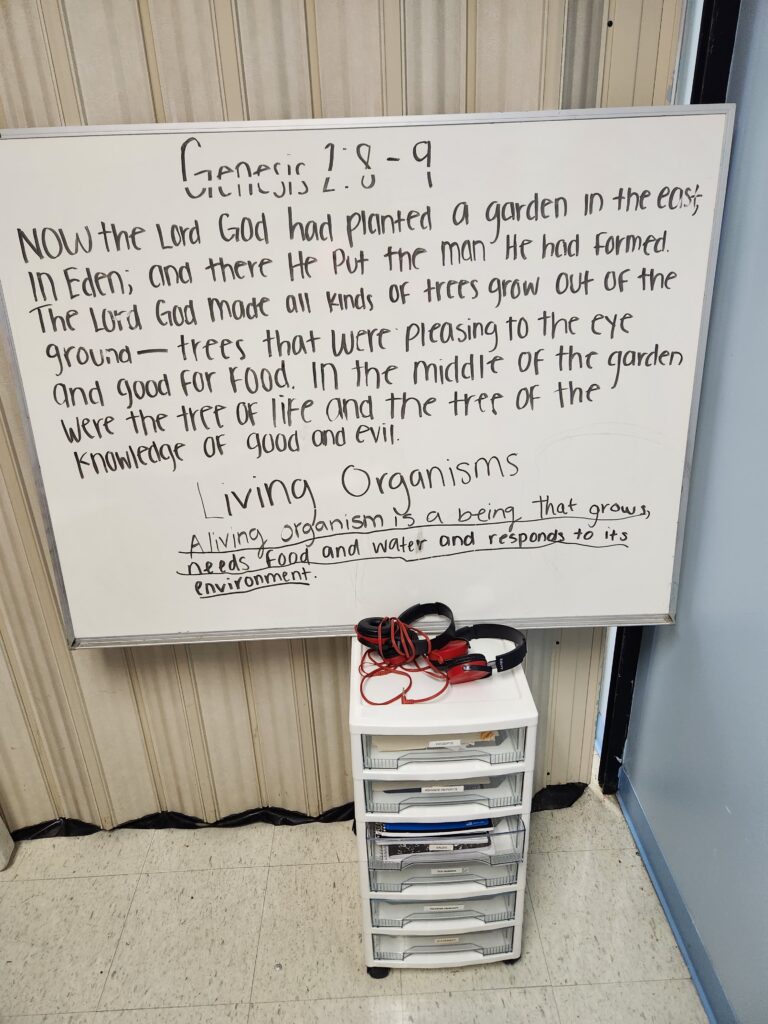 Genesis 2:8-9
NOW the Lord God had planted a garden in the east,
In Eden; and there He Put the man He had formed.
The Lord God made all kinds of trees grow out of the
ground — trees that were pleasing to the eye
and good for food. In the middle of the garden
were the tree of life and the tree of the
knowledge of good and evil.
Living Organisms
A living organism is a being that grows,
needs food and water and responds to its
environment.